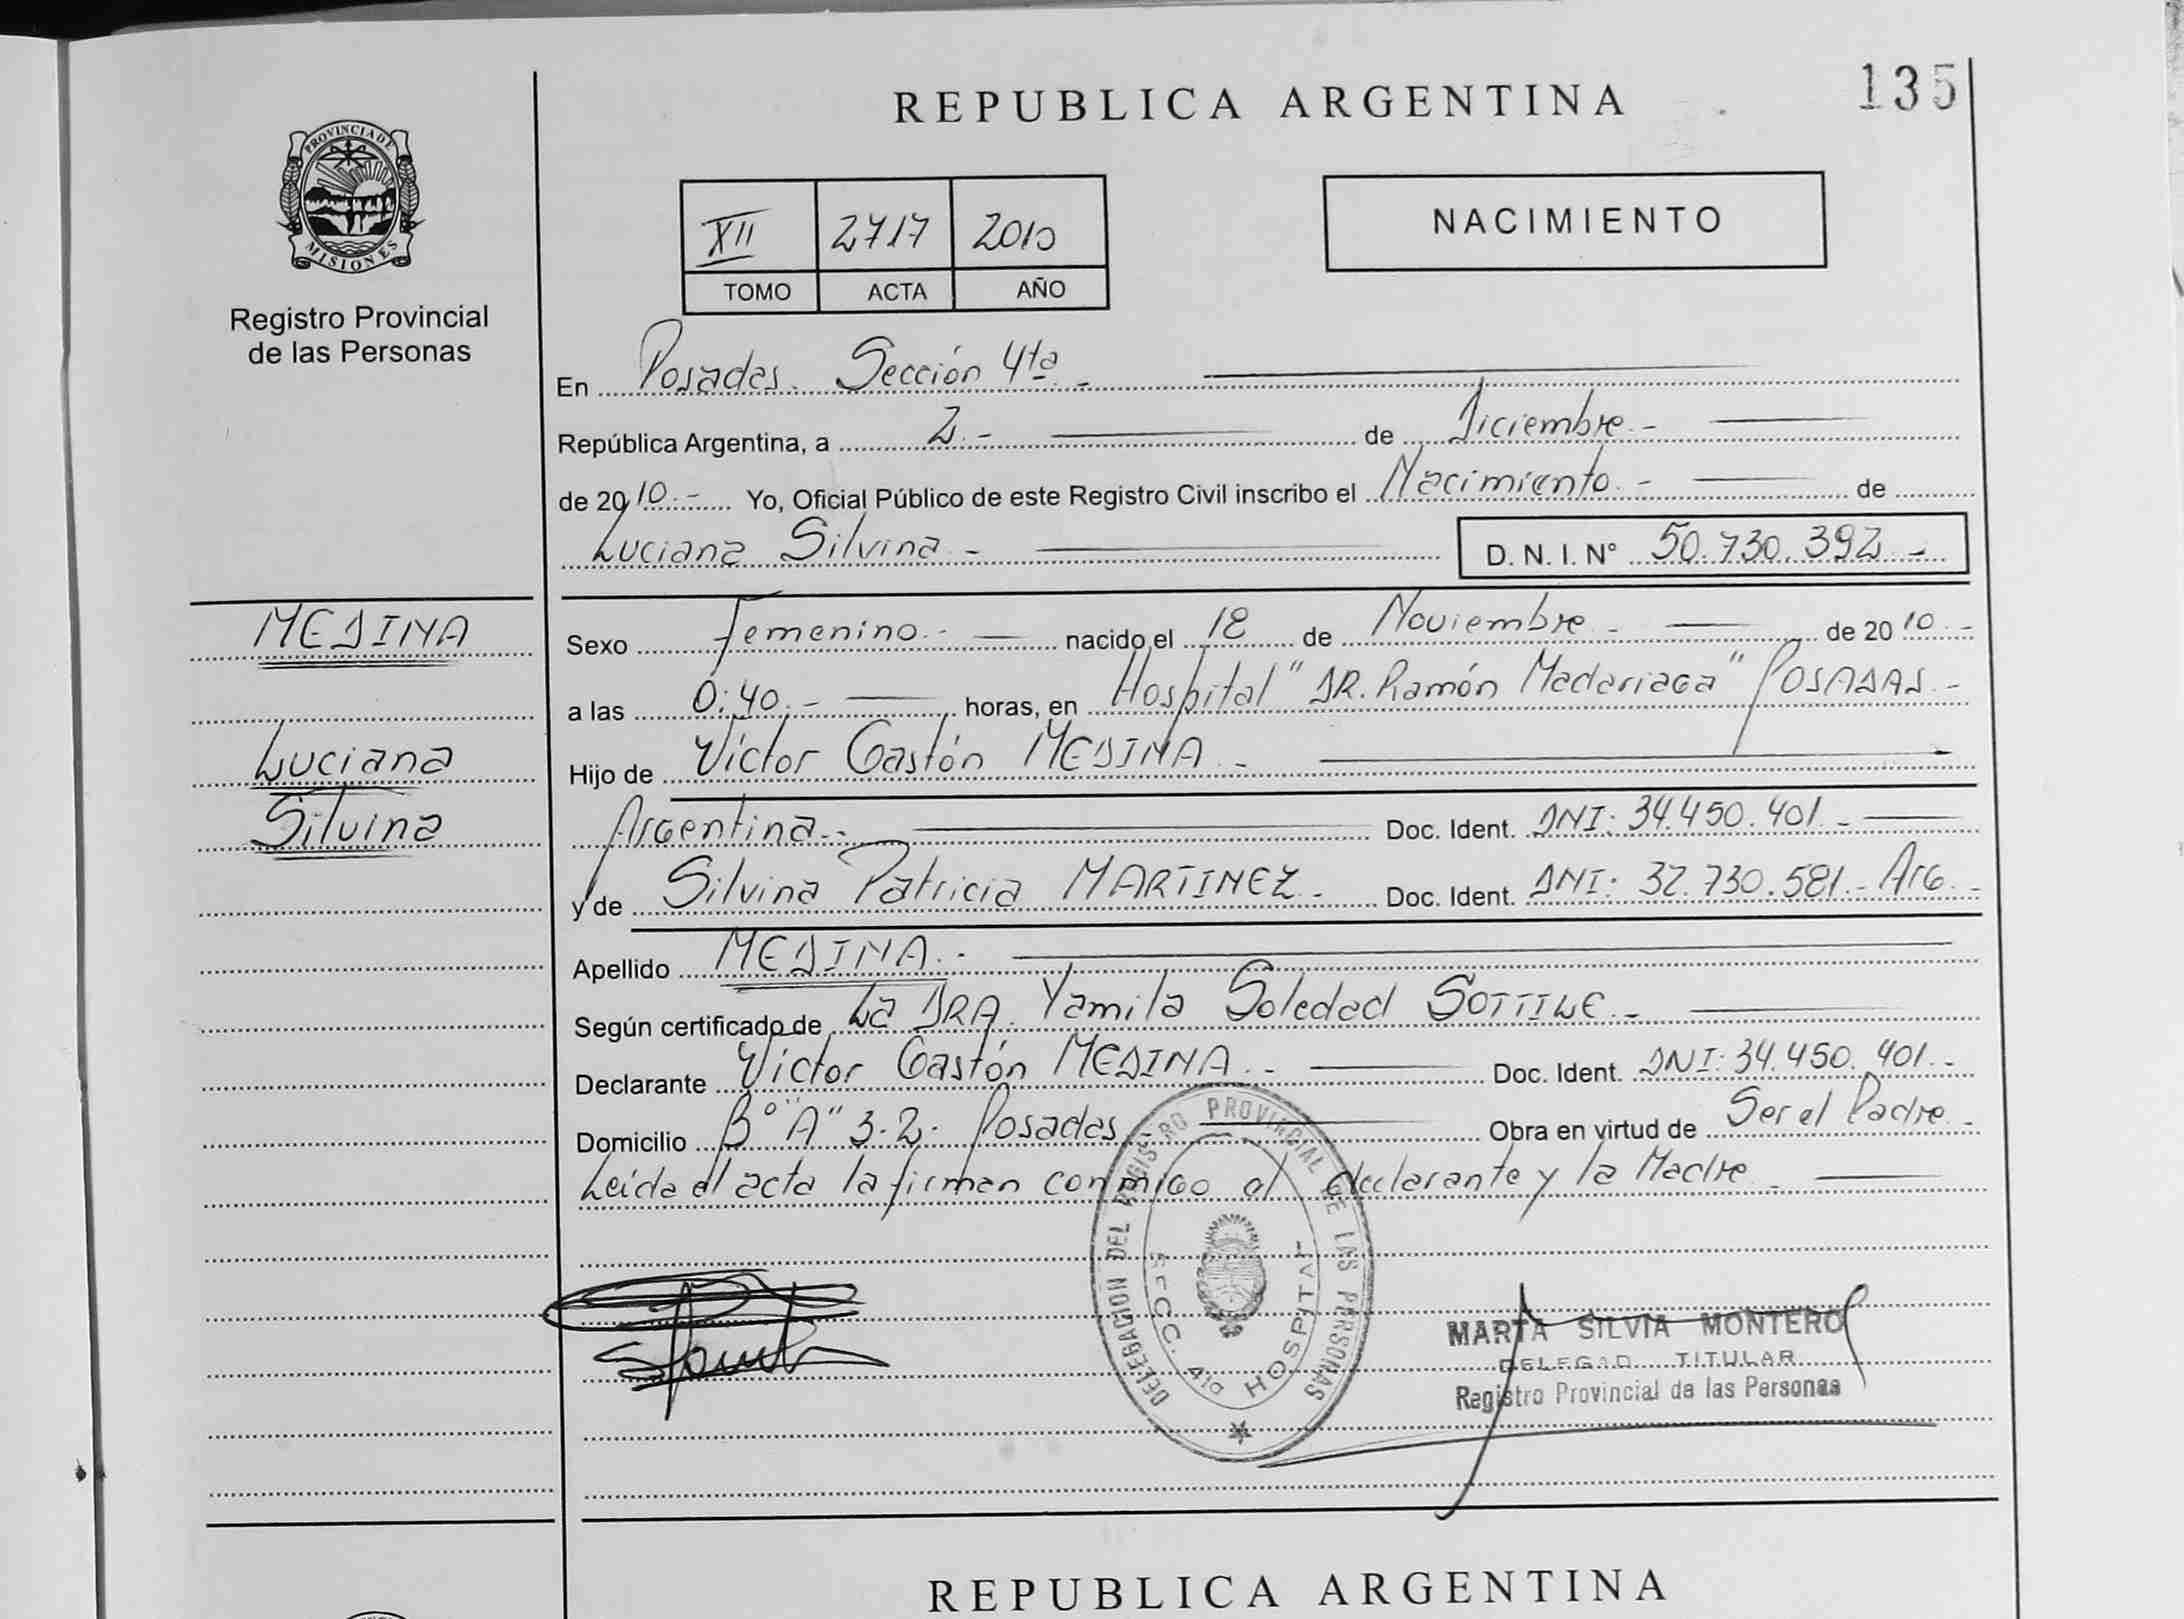 REPUBLICA ARGENTINA
135
PROVINCIA DE
MISIONES
Registro Provincial
de las Personas
XII 2717 2010
TOMO ACTA AÑO
NACIMIENTO
En Posadas. Sección 4ta -
República Argentina, a 2.- de Diciembre.-
de 2010.- Yo, Oficial Público de este Registro Civil inscribo el Nacimiento.- de
Luciana Silvina.- D. N. I. N° 50.730.392.-
MEDINA
Luciana
Silvina
Sexo Femenino.- nacido el 18 de Noviembre.- de 2010.-
a las 0:40.- horas, en Hospital "DR. Ramón Madariaga" POSADAS.-
Hijo de Víctor Gastón MEDINA.-
Argentina.- Doc. Ident. DNI: 34.450.401.-
y de Silvina Patricia MARTINEZ.- Doc. Ident. DNI: 32.730.581.- Arg.-
Apellido MEDINA.-
Según certificado de La DRA. Yamila Soledad SOTTILE.-
Declarante Víctor Gastón MEDINA.- Doc. Ident. DNI: 34.450.401.-
Domicilio B° "A" 3-2- Posadas. Obra en virtud de Ser el Padre.-
Leída el acta la firman conmigo el declarante y la Madre.-
DELEGACION DEL REGISTRO PROVINCIAL DE LAS PERSONAS
SECC. 4ta HOSPITAL
MARTA SILVIA MONTERO
DELEGAD TITULAR
Registro Provincial de las Personas
REPUBLICA ARGENTINA